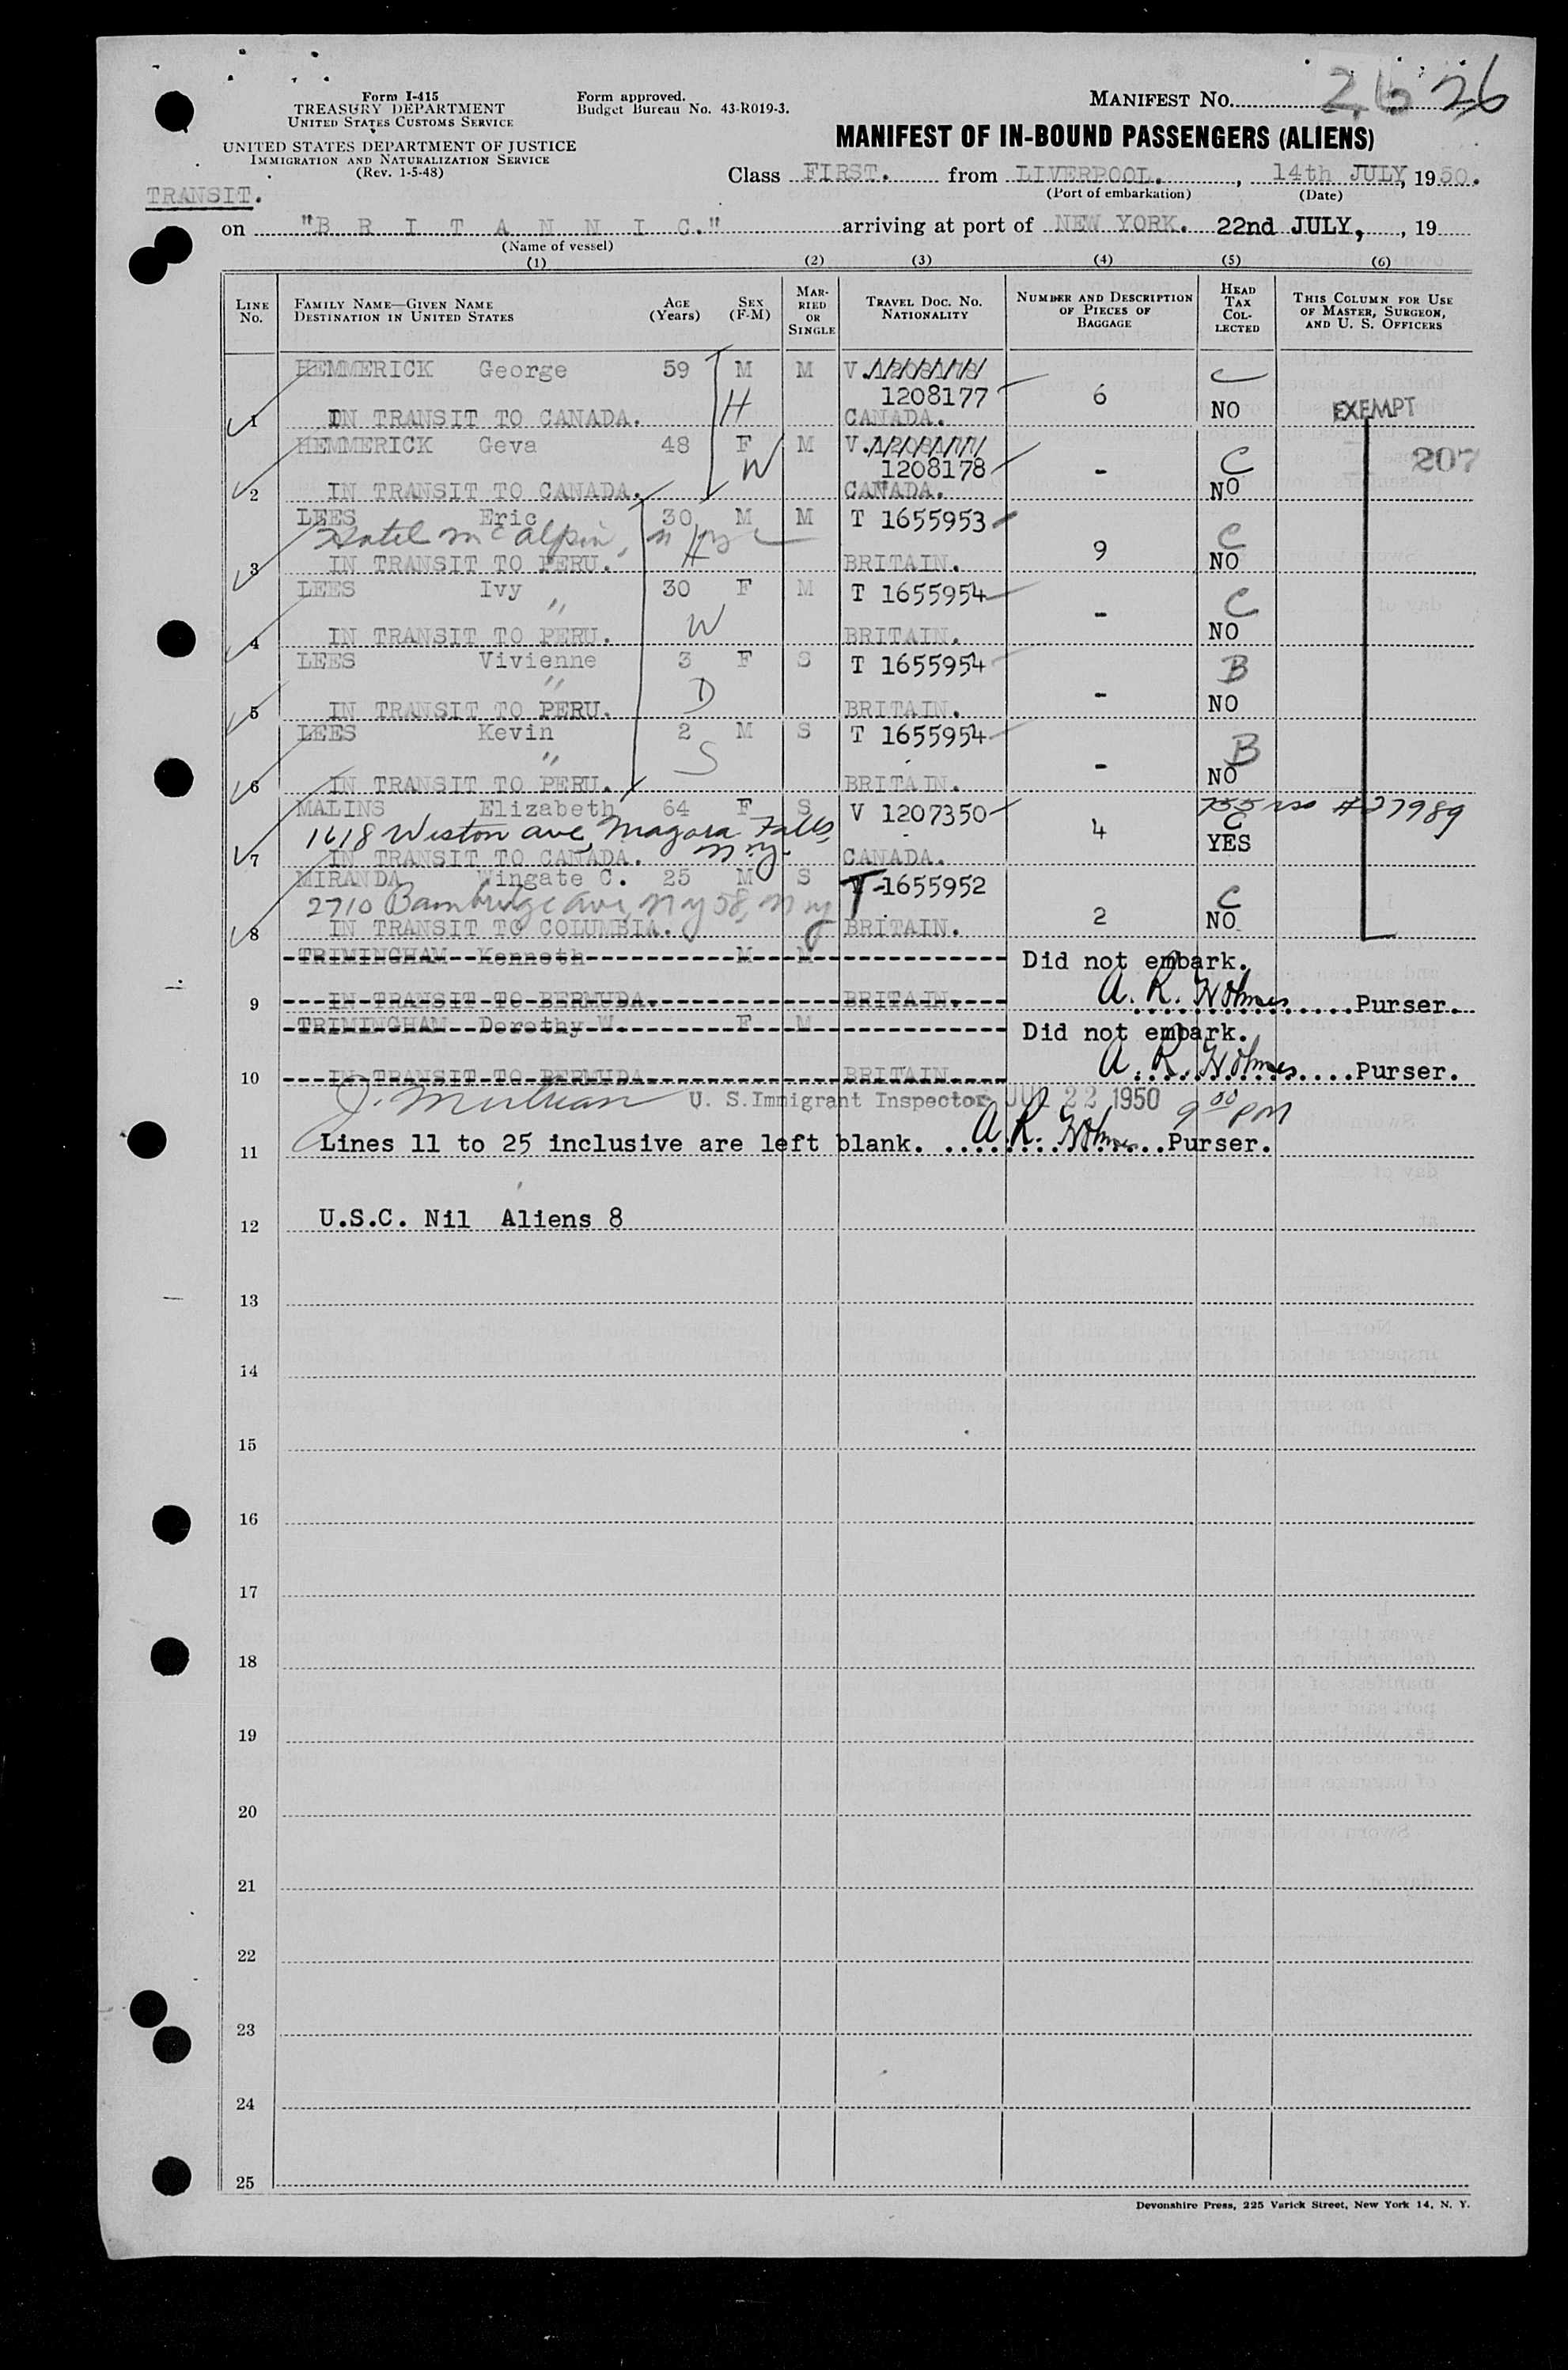 Form I-415
TREASURY DEPARTMENT
UNITED STATES CUSTOMS SERVICE
UNITED STATES DEPARTMENT OF JUSTICE
IMMIGRATION AND NATURALIZATION SERVICE
(Rev. 1-5-48)
Form approved.
Budget Bureau No. 43-R019-3.
MANIFEST NO. 26 26
MANIFEST OF IN-BOUND PASSENGERS (ALIENS)
Class FIRST. from LIVERPOOL., 14th JULY, 1950.
(Port of embarkation) (Date)
TRANSIT.
on "B R I T A N N I C." arriving at port of NEW YORK. 22nd JULY, , 19
(Name of vessel)
(1) (2) (3) (4) (5) (6)
LINE NO. FAMILY NAME—GIVEN NAME DESTINATION IN UNITED STATES AGE (Years) SEX (F-M) MARRIED OR SINGLE TRAVEL DOC. NO. NATIONALITY NUMBER AND DESCRIPTION OF PIECES OF BAGGAGE HEAD TAX COLLECTED THIS COLUMN FOR USE OF MASTER, SURGEON, AND U. S. OFFICERS
HEMMERICK George 59 M M V.1208178 C
1208177 6
1 IN TRANSIT TO CANADA. H CANADA. NO EXEMPT
HEMMERICK Geva 48 F M V.1208177
W 1208178 - C 207
2 IN TRANSIT TO CANADA. CANADA. NO
LEES Eric 30 M M T 1655953
Hotel McAlpin, C
3 IN TRANSIT TO PERU. H BRITAIN. 9 NO
LEES Ivy 30 F M T 1655954
" W - C
4 IN TRANSIT TO PERU. BRITAIN. NO
LEES Vivienne 3 F S T 1655954 B
" D -
5 IN TRANSIT TO PERU. BRITAIN. NO
LEES Kevin 2 M S T 1655954 B
" S -
6 IN TRANSIT TO PERU. BRITAIN. NO
MALINS Elizabeth 64 F S V 1207350 #27989
1618 Weston ave, Niagara Falls, N.Y. 4 C
7 IN TRANSIT TO CANADA. CANADA. YES
MIRANDA Wingate C. 25 M S T-1655952
2710 Bambridge ave, N Y 58, N Y C
8 IN TRANSIT TO COLUMBIA. BRITAIN. 2 NO
TRIMINGHAM Kenneth M M Did not embark.
9 IN TRANSIT TO BERMUDA. BRITAIN. A. R. Holmes Purser.
TRIMINGHAM Dorothy W. F M Did not embark.
10 IN TRANSIT TO BERMUDA BRITAIN A. R. Holmes Purser.
U. S. Immigrant Inspector JUL 22 1950 9 00 PM
11 Lines 11 to 25 inclusive are left blank. A. R. Holmes Purser.
12 U.S.C. Nil Aliens 8
13
14
15
16
17
18
19
20
21
22
23
24
25
Devonshire Press, 225 Varick Street, New York 14, N. Y.